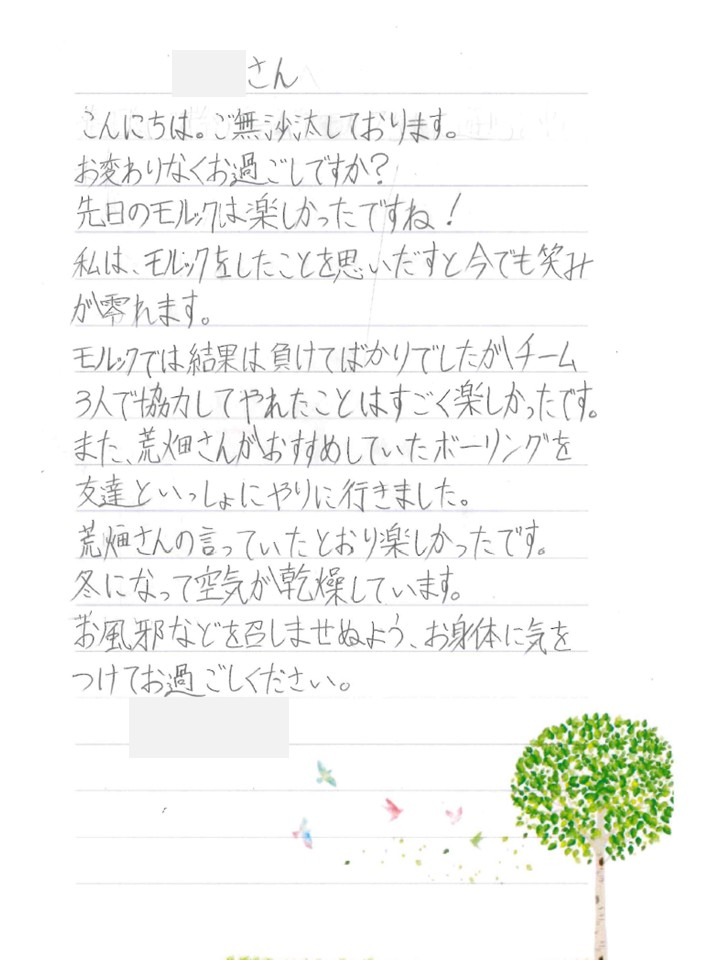 さん
こんにちは。ご無沙汰しております。
お変わりなくお過ごしですか？
先日のモルックは楽しかったですね！
私は、モルックをしたことを思いだすと今でも笑み
が零れます。
モルックでは結果は負けてばかりでしたが、チーム
3人で協力してやれたことはすごく楽しかったです。
また、荒畑さんがおすすめしていたボーリングを
友達といっしょにやりに行きました。
荒畑さんの言っていたとおり楽しかったです。
冬になって空気が乾燥しています。
お風邪などを召しませぬよう、お身体に気を
つけてお過ごしください。